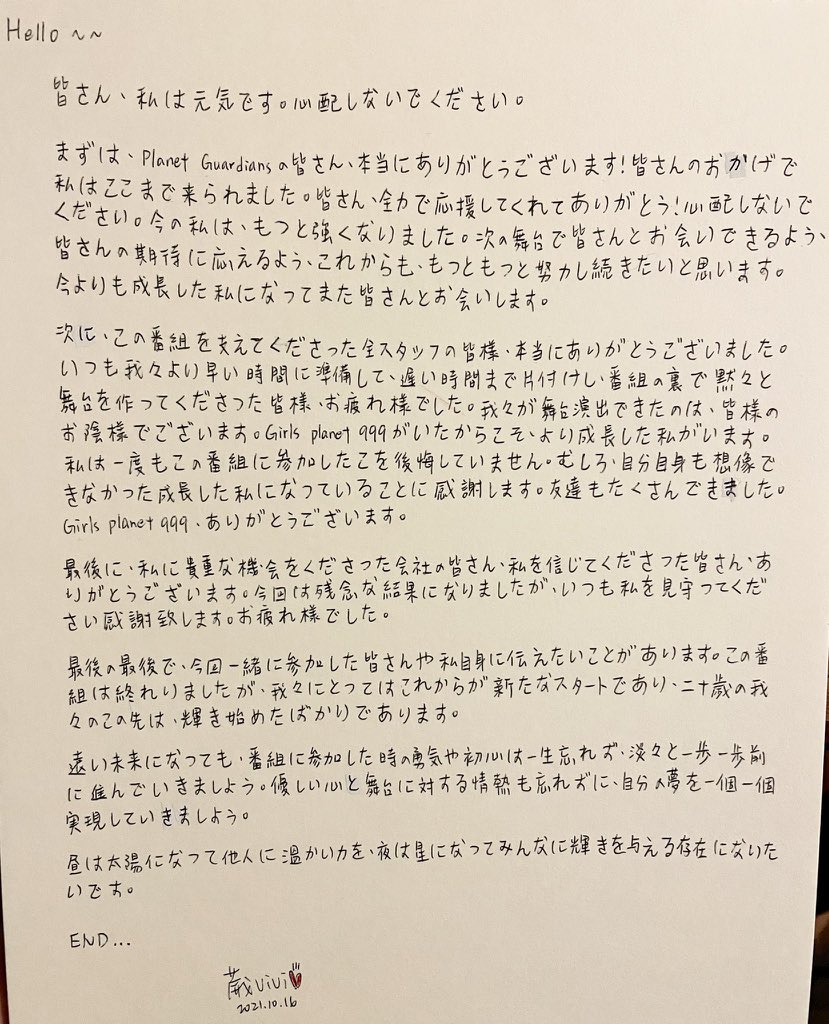 Hello ~~
皆さん、私は元気です。心配しないでください。
まずは、Planet Guardiansの皆さん、本当にありがとうございます!皆さんのおかげで
私はここまで来られました。皆さん、全力で応援してくれてありがとう!心配しないで
ください。今の私は、もっと強くなりました。次の舞台で皆さんとお会いできるよう、
皆さんの期待に応えるよう、これからも、もっともっと努力し続きたいと思います。
今よりも成長した私になってまた皆さんとお会いします。
次に、この番組を支えてくださった全スタッフの皆様、本当にありがとうございました。
いつも我々より早い時間に準備して、遅い時間まで片付けし、番組の裏で黙々と
舞台を作ってくださった皆様、お疲れ様でした。我々が舞台演出できたのは、皆様の
お陰様でございます。Girls planet 999がいたからこそ、より成長した私がいます。
私は一度もこの番組に参加したこを後悔していません。むしろ、自分自身も想像で
きなかった成長した私になっていることに感謝します。友達もたくさんできました。
Girls planet 999、ありがとうございます。
最後に、私に貴重な機会をくださった会社の皆さん、私を信じてくださった皆さん、あ
りがとうございます。今回は残念な結果になりましたが、いつも私を見守ってくだ
さい感謝致します。お疲れ様でした。
最後の最後で、今回一緒に参加した皆さんや私自身に伝えたいことがあります。この番
組は終れりましたが、我々にとってはこれからが新たなスタートであり、二十歳の我
々のこの先は、輝き始めたばかりであります。
遠い未来になっても、番組に参加した時の勇気や初心は一生忘れず、淡々と一歩一歩前
に進んでいきましょう。優しい心と舞台に対する情熱も忘れずに、自分の夢を一個一個
実現していきましょう。
昼は太陽になって他人に温かい力を、夜は星になってみんなに輝きを与える存在になりた
いです。
END...
葳ViVi
2021.10.16